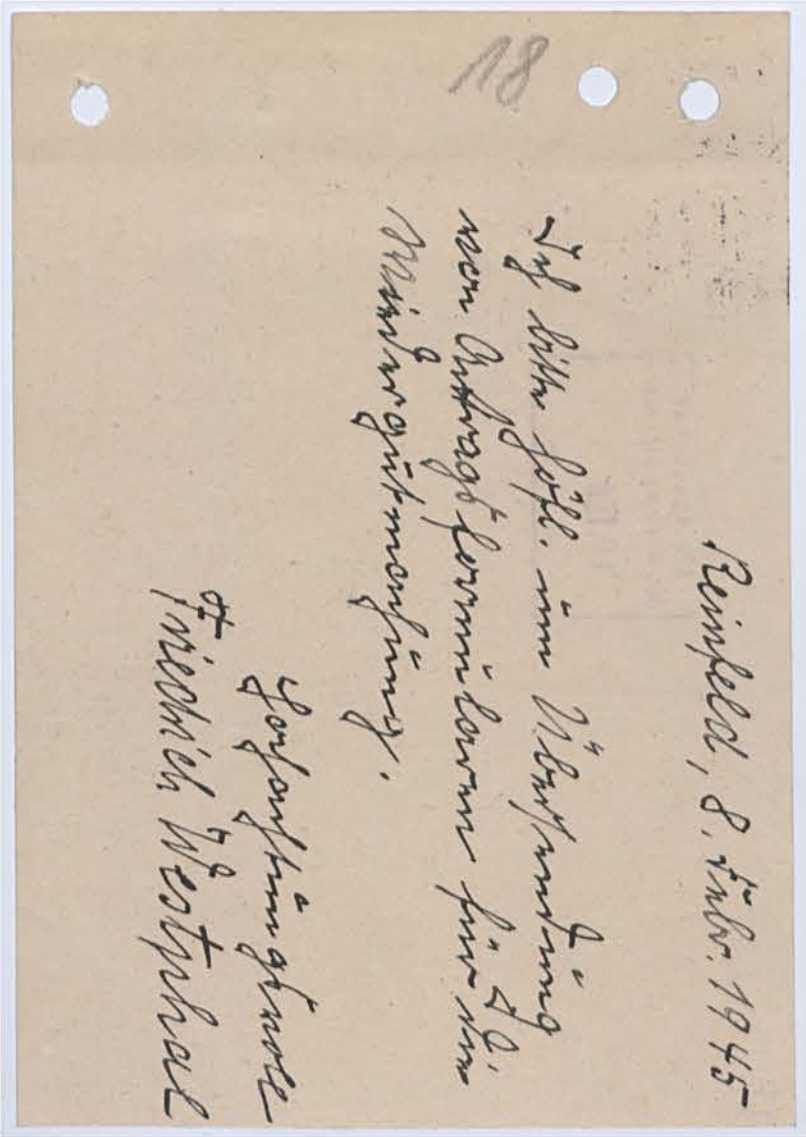 18
Reinfeld, 8. Febr. 1945
Ich bitte höfl. um Übersendung
von Antragsformularen für
Wiedergutmachung.
Hochachtungsvoll
Friedrich Westphal